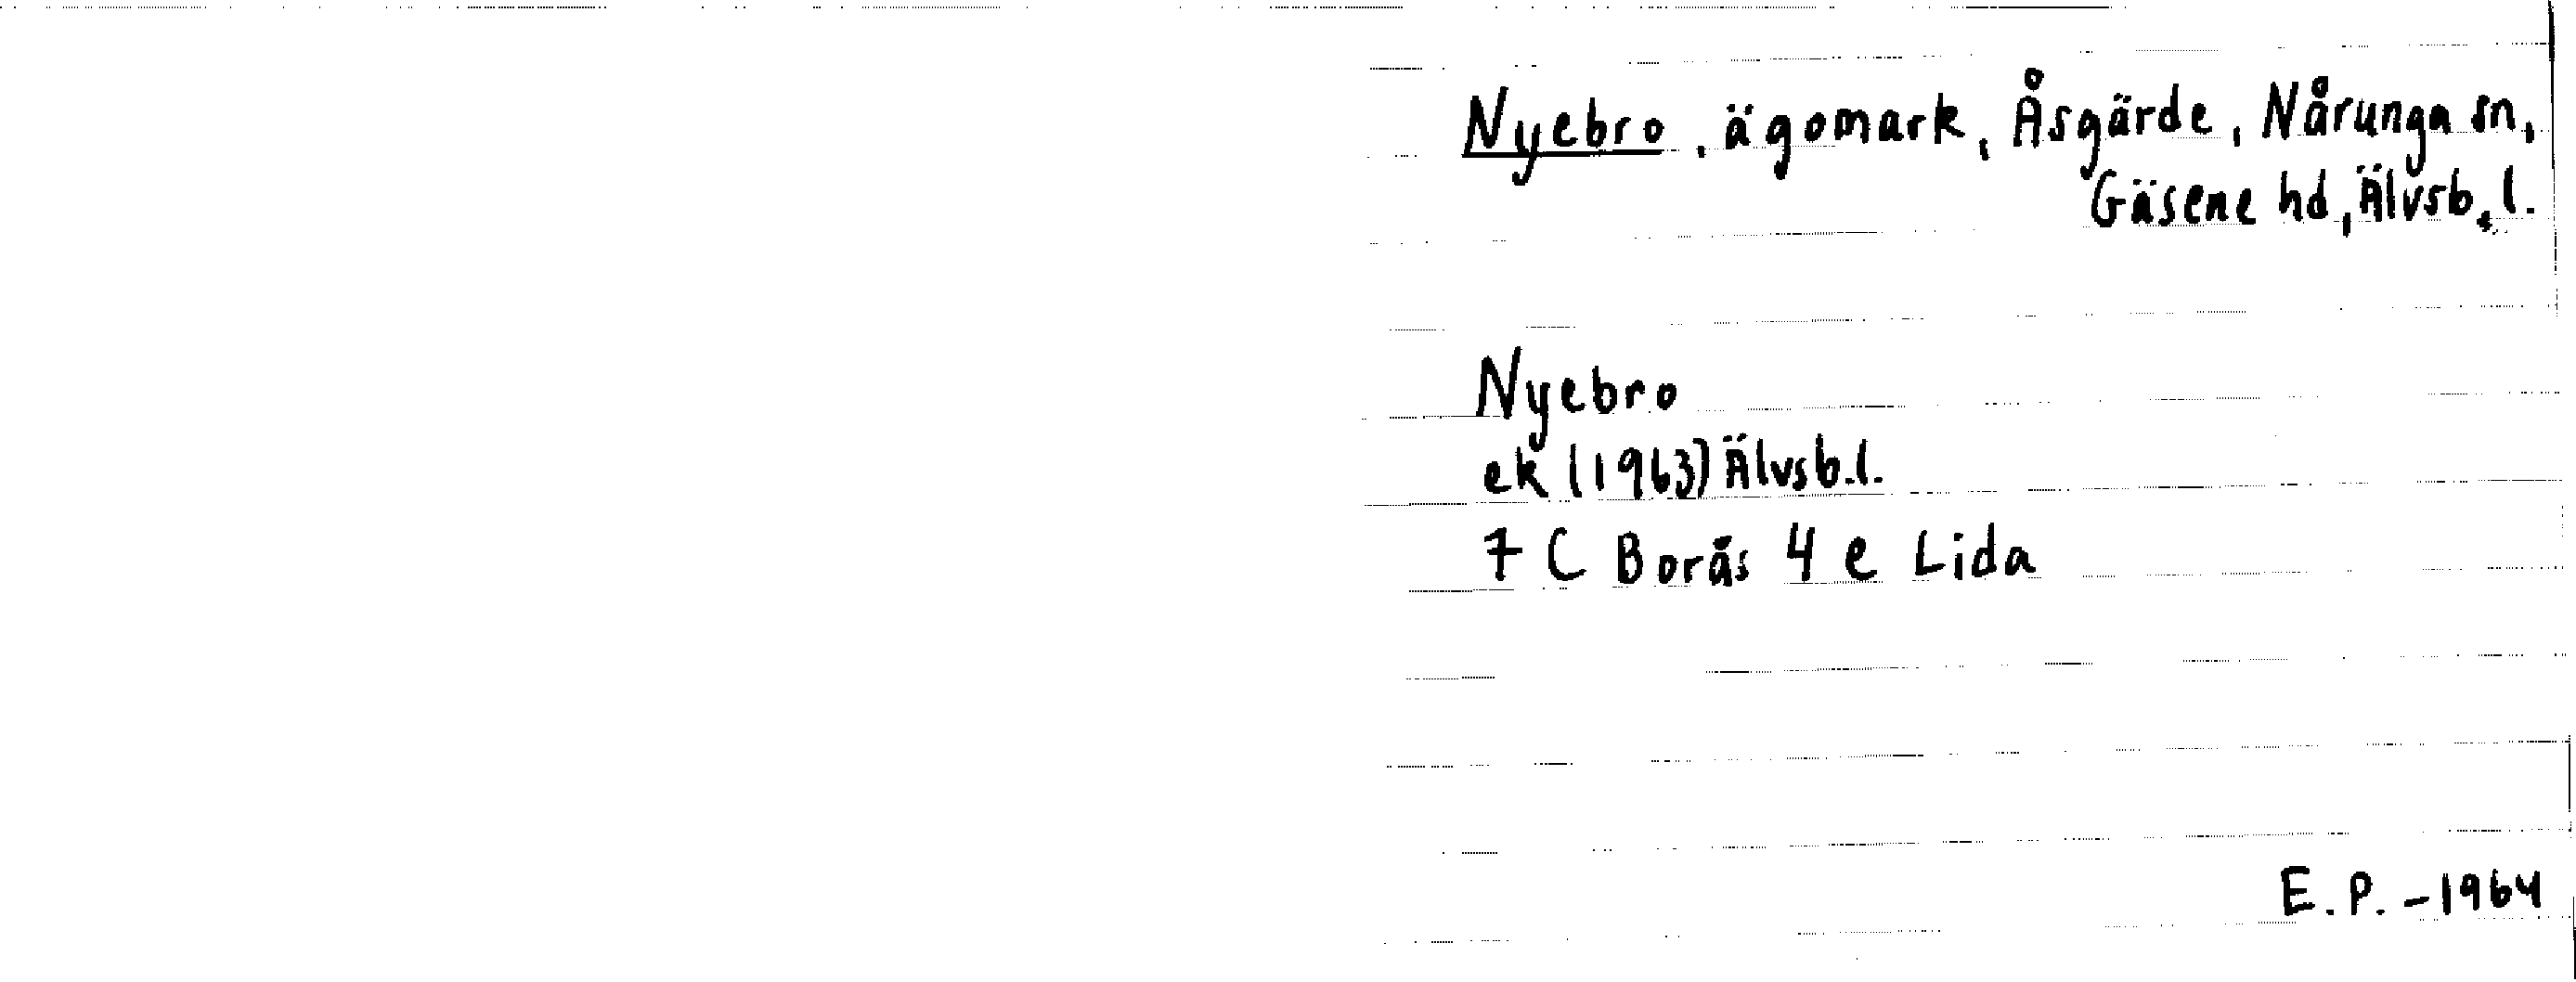 Nyebro, ägomark, Åsgärde, Nårunga sn,
Gäsene hd, Älvsb. l.
Nyebro
ek (1963) Älvsb.l.
7 C Borås 4 e Lida
E.P. -1964